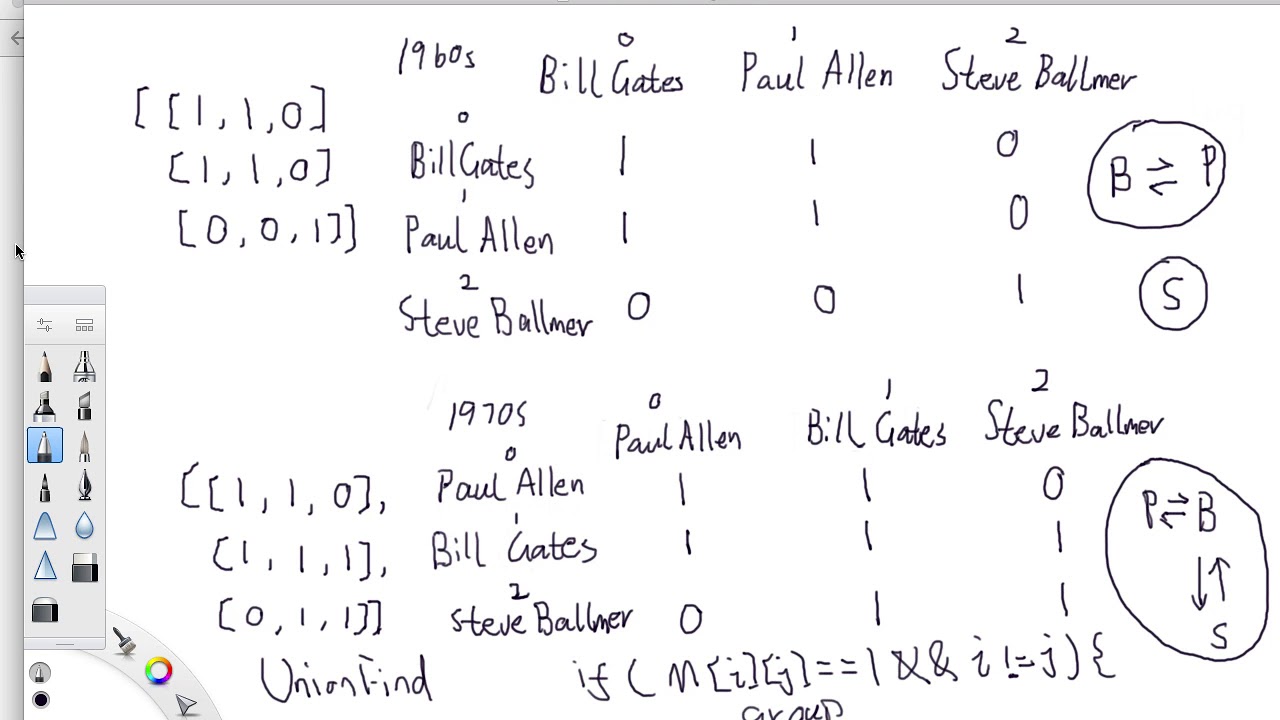 0 1 2
1960s Bill Gates Paul Allen Steve Ballmer
[[1,1,0] 0
[1,1,0] Bill Gates 1 1 0 B ⇌ P
1
[0,0,1]] Paul Allen 1 1 0
2
Steve Ballmer 0 0 1 S
0 1 2
1970s Paul Allen Bill Gates Steve Ballmer
0
[[1,1,0], Paul Allen 1 1 0 P⇌B
1
[1,1,1], Bill Gates 1 1 1 ↓↑
2
[0,1,1]] Steve Ballmer 0 1 1 S
UnionFind if ( M[i][j]==1 && i!=j){
group